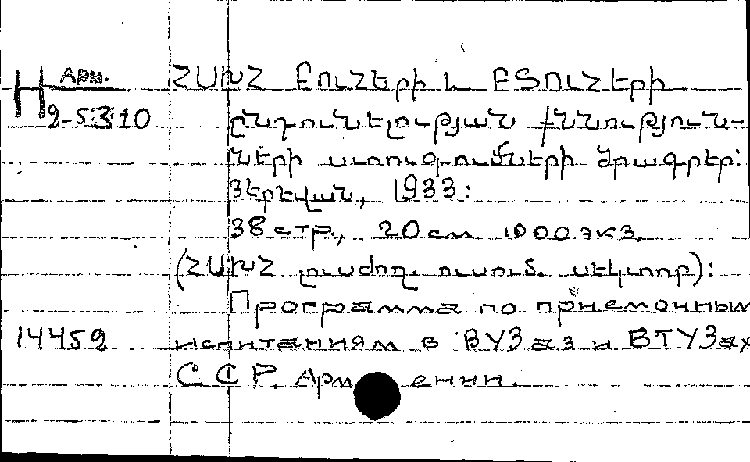 Арм.
H 2-5310
ՀԱԽՀ ԲՈՒՀԵՐԻ և ԲՏՈՒՀԵՐԻ
ընդունելության քննություն-
ների ստուգումների ծրագրեր։
Յերեվան, 1933։
38 стр., 20 см 1000 экз.
(ՀԱԽՀ լուսժող. ուսում. սեկտոր)։
Программа по приемочным
14459 испитаниям в ВУЗах и ВТУЗах
С С Р. Армении.